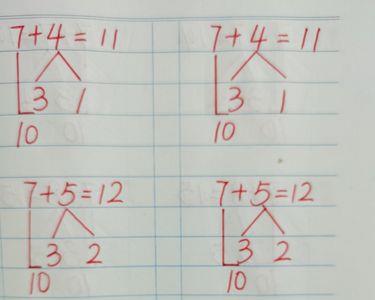 7+4=11 7+4=11
3 1 3 1
10 10
7+5=12 7+5=12
3 2 3 2
10 10